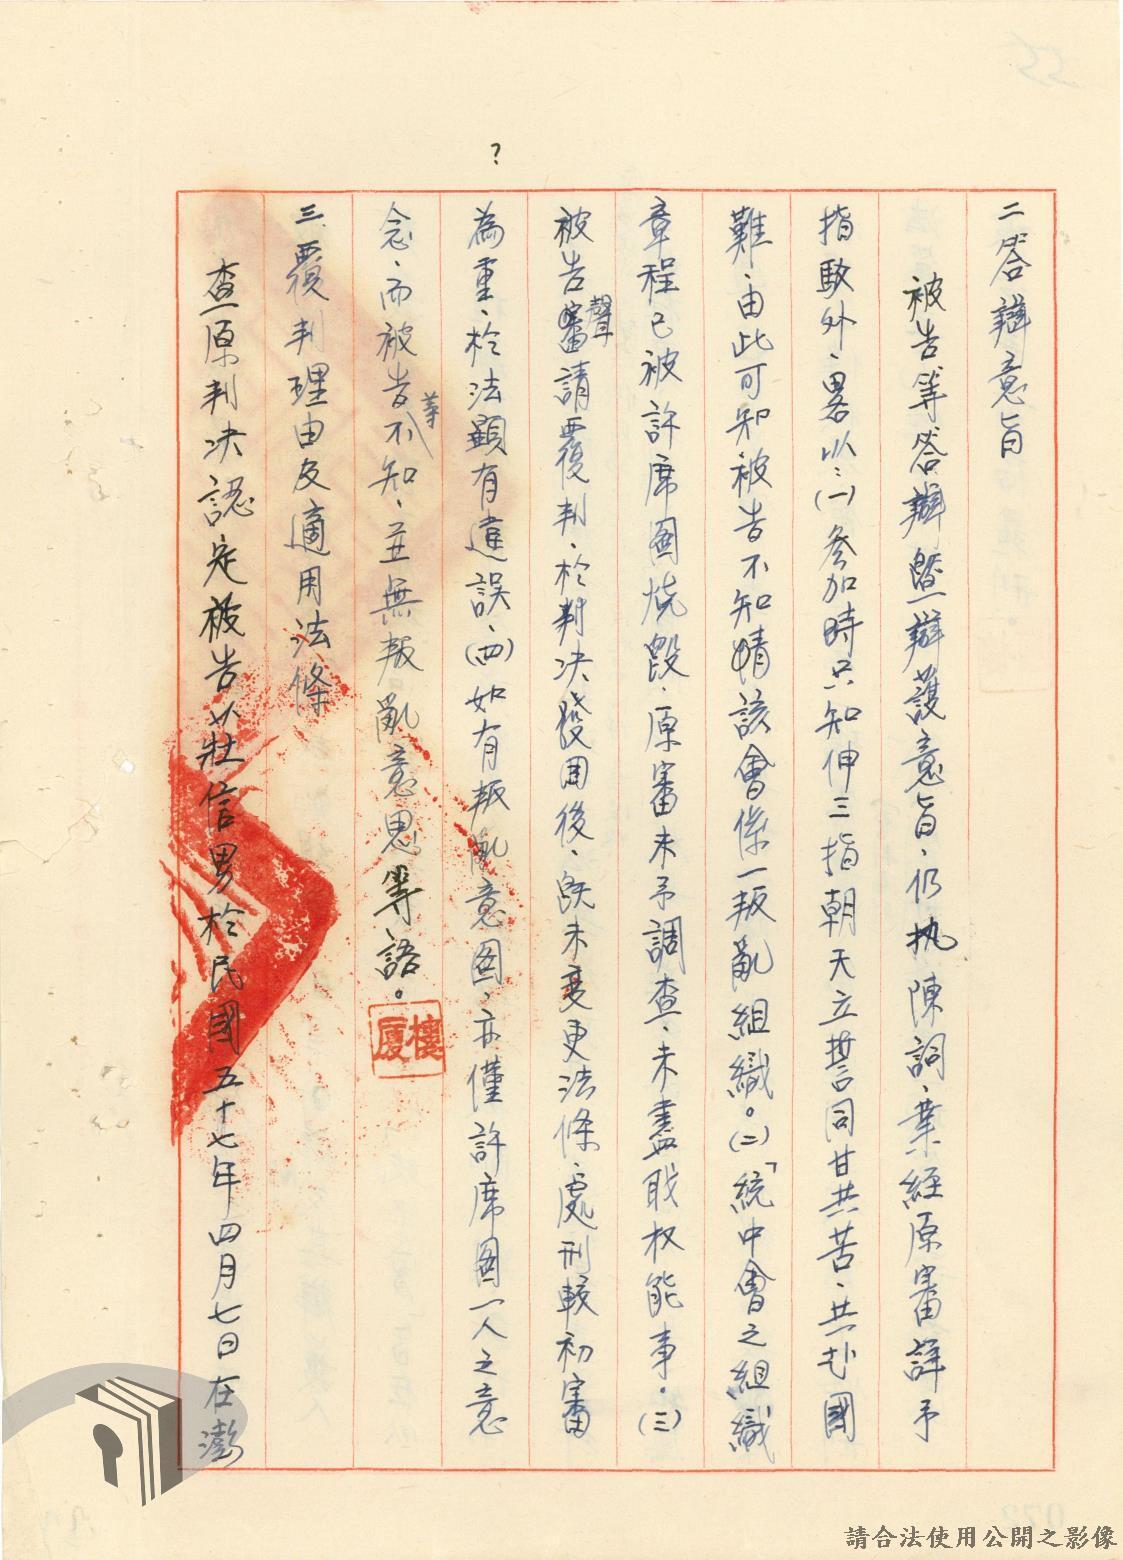 二答辯意旨
被告等答辯暨辯護意旨、仍执陳詞、業經原審詳予
指駁外、畧以：㈠參加時只知伸三指朝天立誓同甘共苦、共赴國
難、由此可知被告不知情該會係一叛亂組織。㈡「統中會之組織
章程已被許席圖燒毀、原審未予調查、未盡職权能事。㈢
被告聲請覆判、於判决發囬後、既未變更法條、處刑較初審
為重、於法顯有違誤、㈣如有叛亂意圖、亦僅許席圖一人之意
念、而被告等不知、並無叛亂意思等語。
三、覆判理由及適用法條
查原判决認定被告莊信男於民國五十七年四月七日在澎
?
樓厦
請合法使用公開之影像